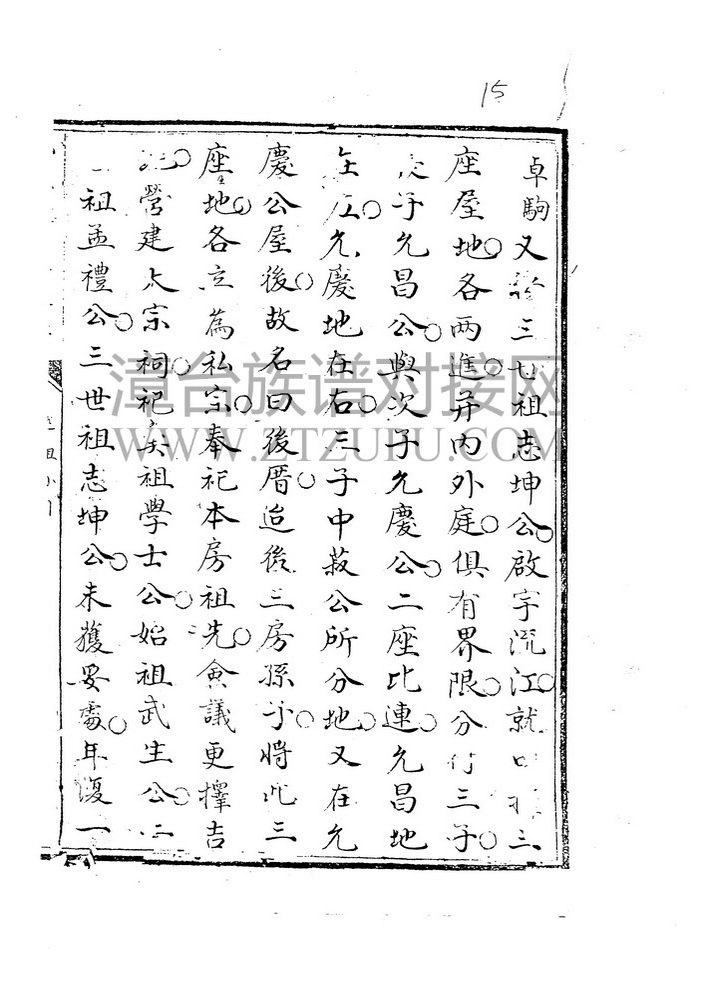 15
卓駒又於三世祖志坤公○啟宇流江○就中三
座屋地○各兩進○并內外庭○俱有界限○分三子○
次子允昌公○與次子允慶公○二座比連○允昌地
在左○允慶地在右○三子中菽公所分地○又在允
慶公屋後○故名曰後厝○迨後三房孫子○將此三
座地○各立為私宗○奉祀本房祖先○僉議更擇吉
營建大宗祠○祀矣祖學士公○始祖武生公○二
祖孟禮公○三世祖志坤公○未獲妥處○年復一
漳台族谱对接网
WWW.ZTZUPU.COM